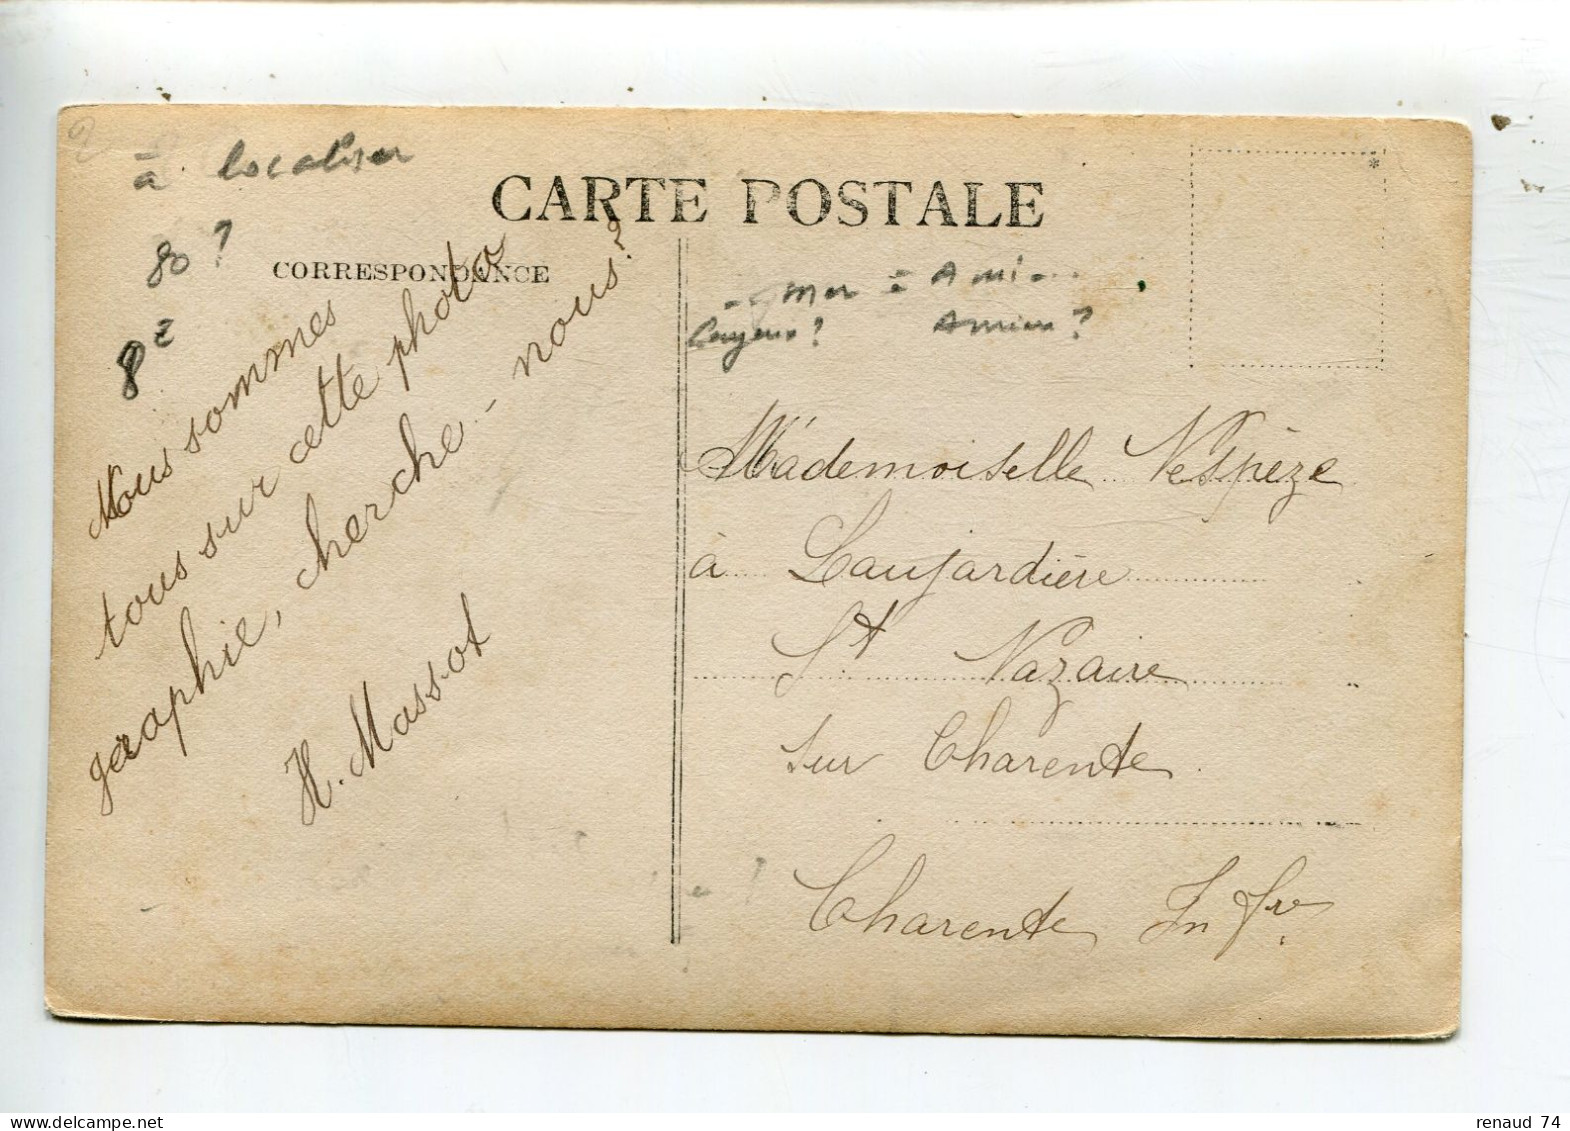 à localiser
CARTE POSTALE
80 ?
CORRESPONDANCE
8e
Nous sommes
tous sur cette photo
graphie, cherche-nous?
H. Massot
mer = Ami...
Cayeux? Amiens?
Mademoiselle Vespèze
à Laujardière
St Nazaire
sur Charente
Charente Infre
delcampe.net
renaud 74